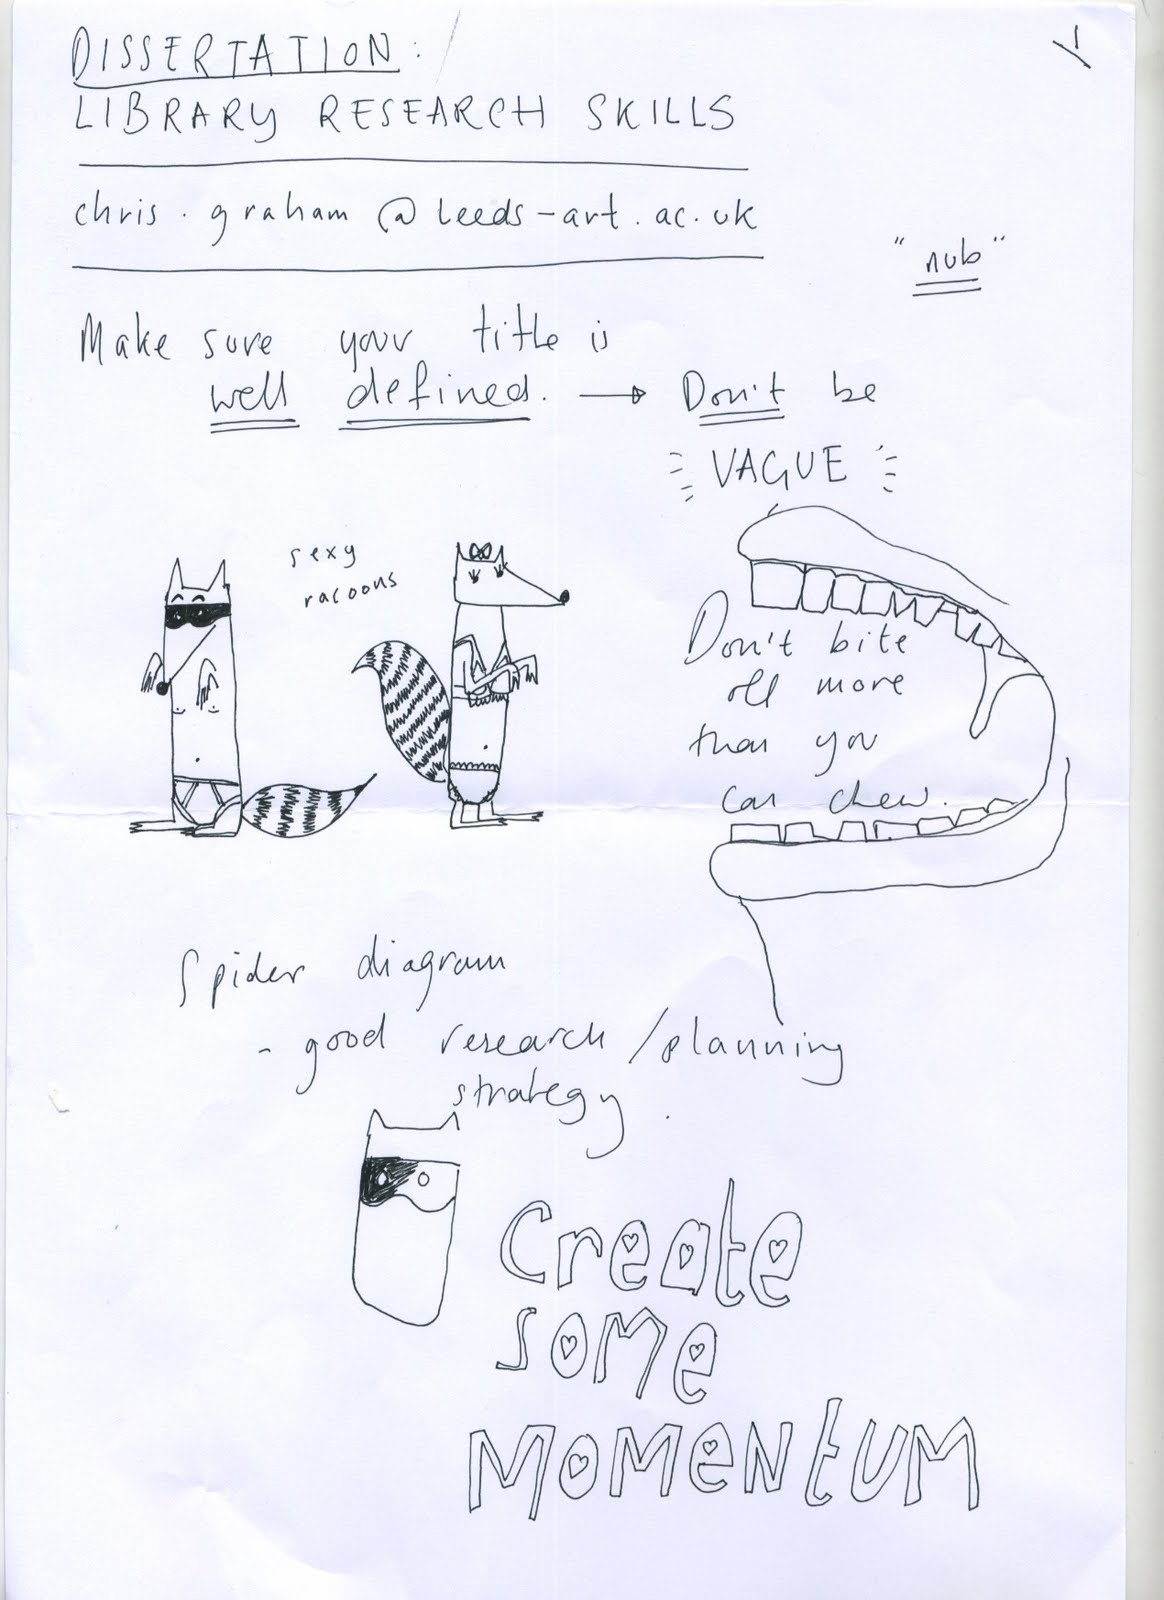 DISSERTATION:
LIBRARY RESEARCH SKILLS
chris.graham@leeds-art.ac.uk
"nub"
Make sure your title is
well defined. → Don't be
VAGUE
sexy
racoons
Don't bite
off more
than you
can chew.
Spider diagram
- good research/planning
strategy.
Create
some
MOMENtUM